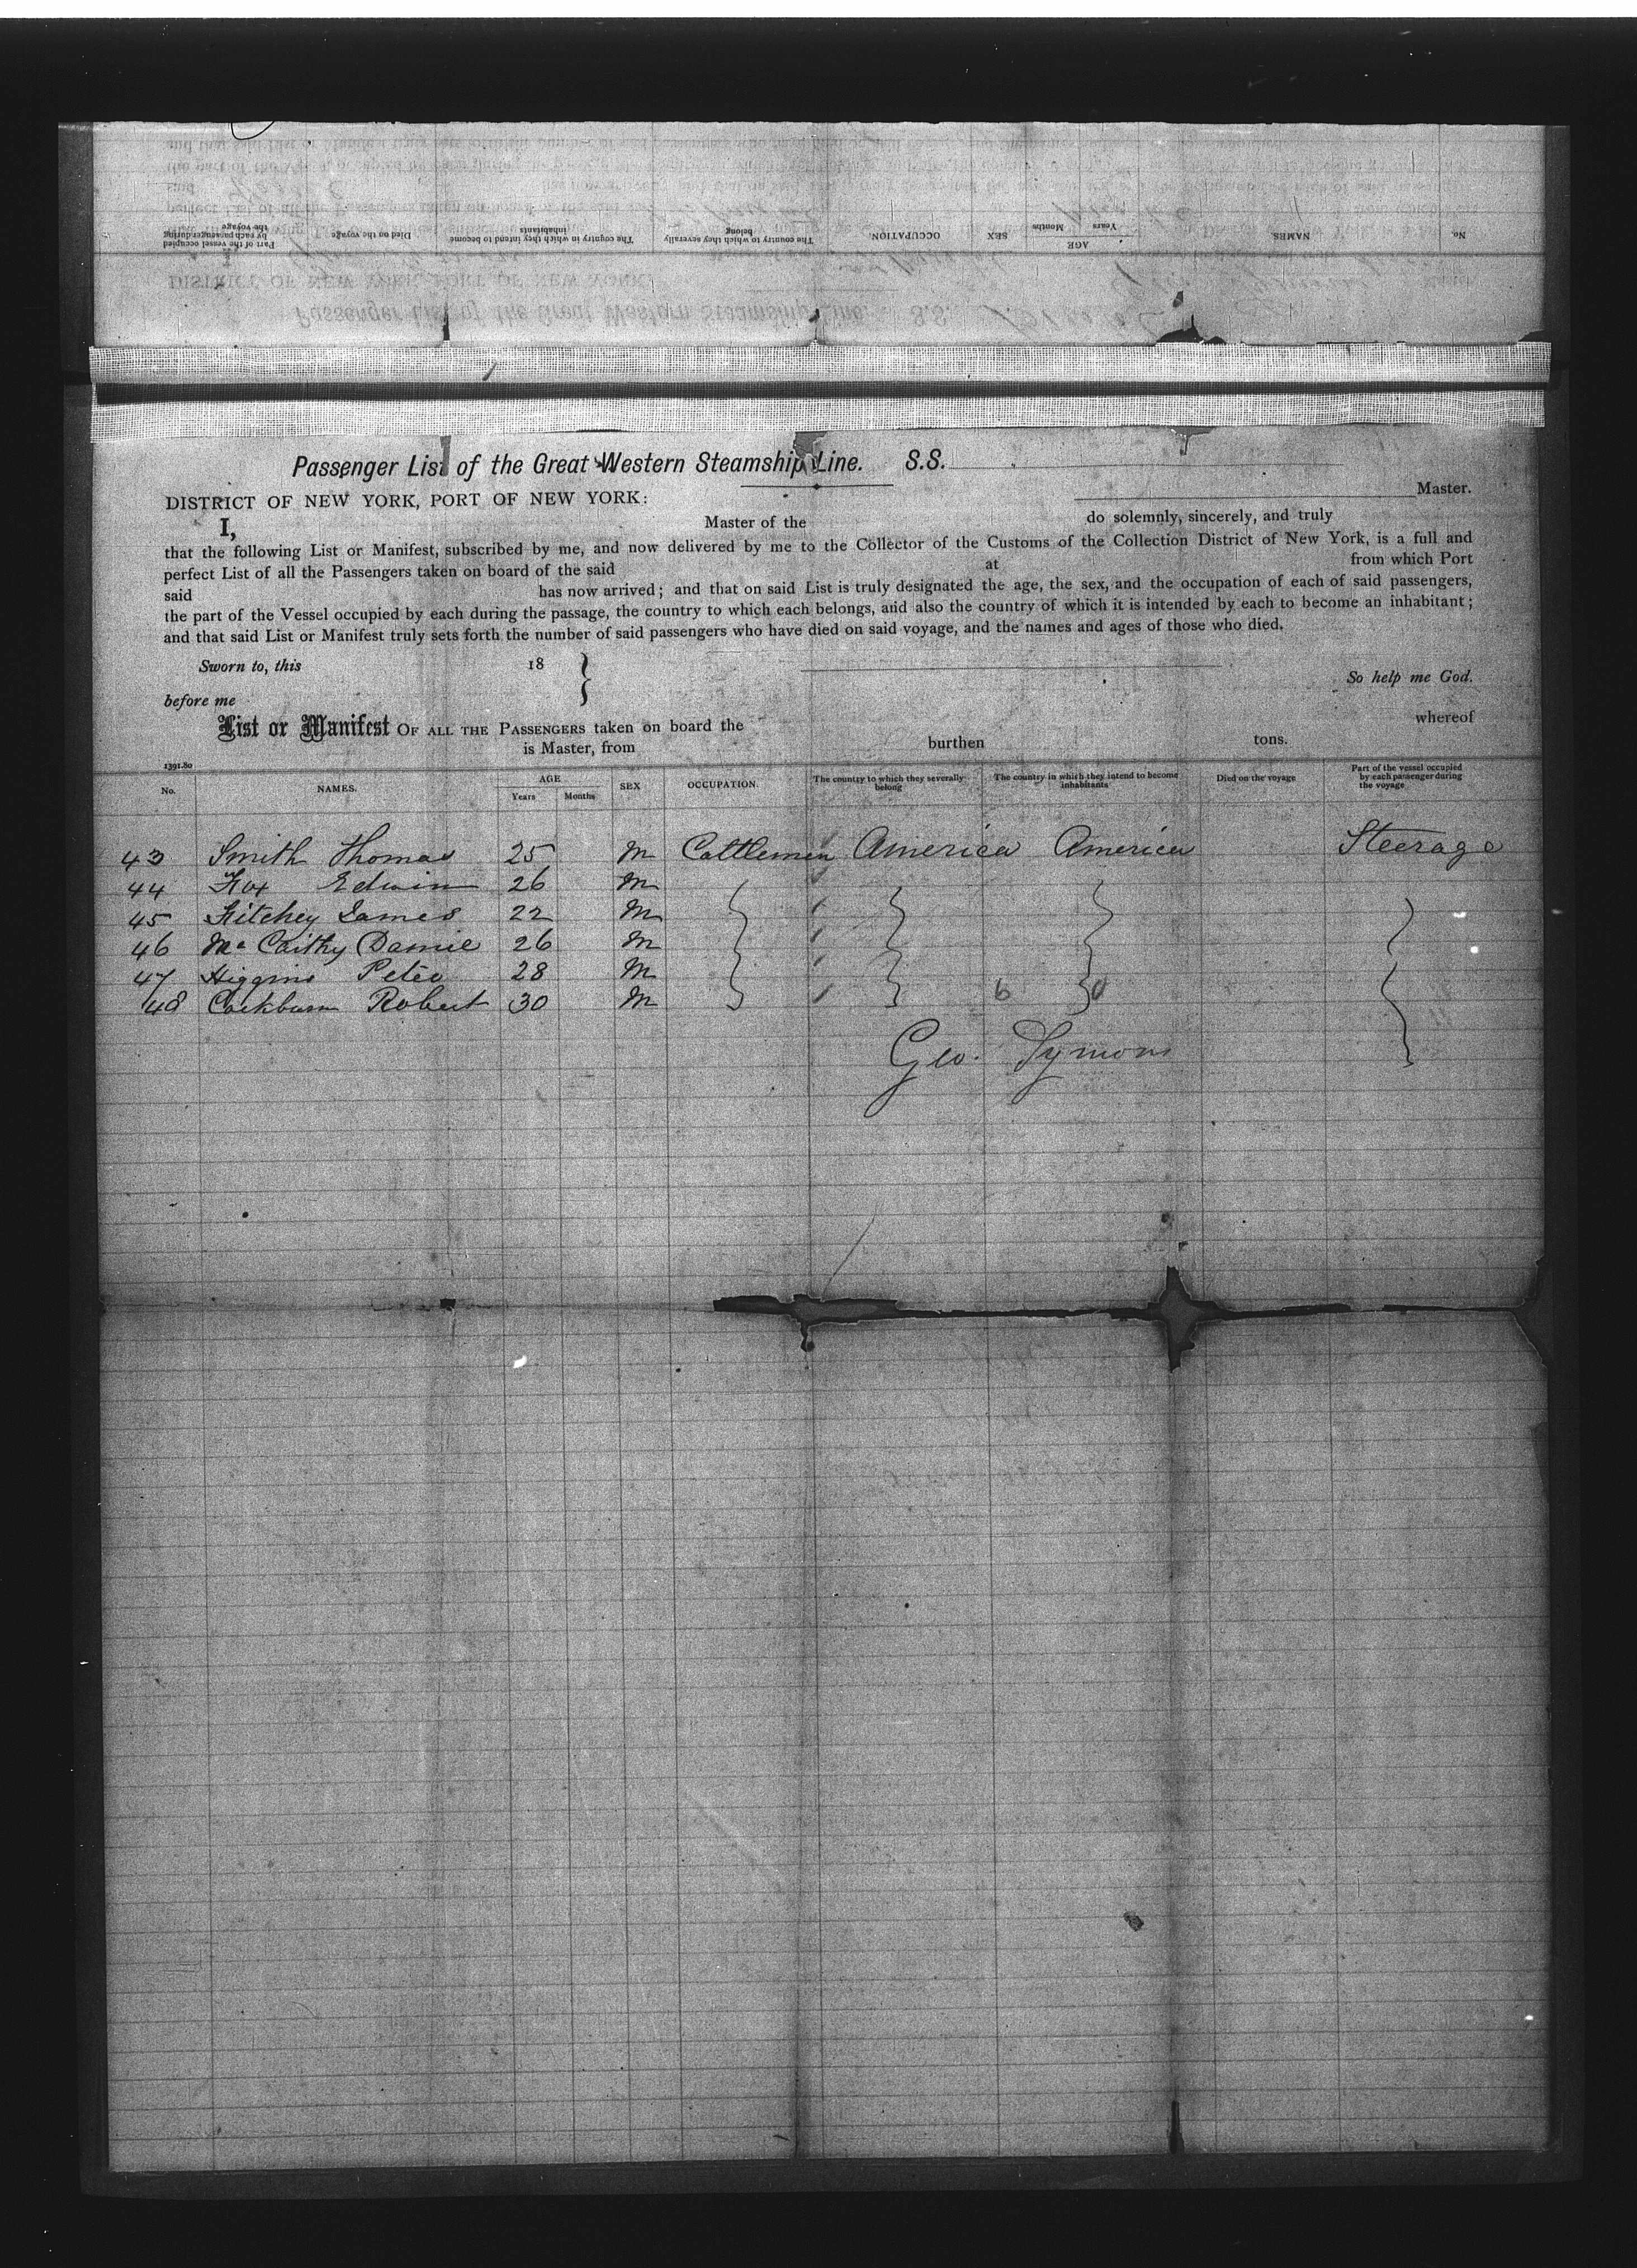 Passenger List of the Great Western Steamship Line. S.S.
DISTRICT OF NEW YORK, PORT OF NEW YORK: Master.
I, Master of the do solemnly, sincerely, and truly
that the following List or Manifest, subscribed by me, and now delivered by me to the Collector of the Customs of the Collection District of New York, is a full and
perfect List of all the Passengers taken on board of the said at from which Port
said has now arrived; and that on said List is truly designated the age, the sex, and the occupation of each of said passengers,
the part of the Vessel occupied by each during the passage, the country to which each belongs, and also the country of which it is intended by each to become an inhabitant;
and that said List or Manifest truly sets forth the number of said passengers who have died on said voyage, and the names and ages of those who died.
Sworn to, this 18
So help me God.
before me
List or Manifest OF ALL THE PASSENGERS taken on board the whereof
is Master, from burthen tons.
1391.80
No. NAMES. AGE Years Months SEX OCCUPATION. The country to which they severally belong The country in which they intend to become inhabitants Died on the voyage Part of the vessel occupied by each passenger during the voyage
43 Smith Thomas 25 M Cattlemen America America Steerage
44 Fox Edwin 26 M
45 Fitchey James 22 M
46 Mc Carthy Daniel 26 M
47 Higgins Peter 28 M
48 Cockburn Robert 30 M 6 0
Geo. Symons